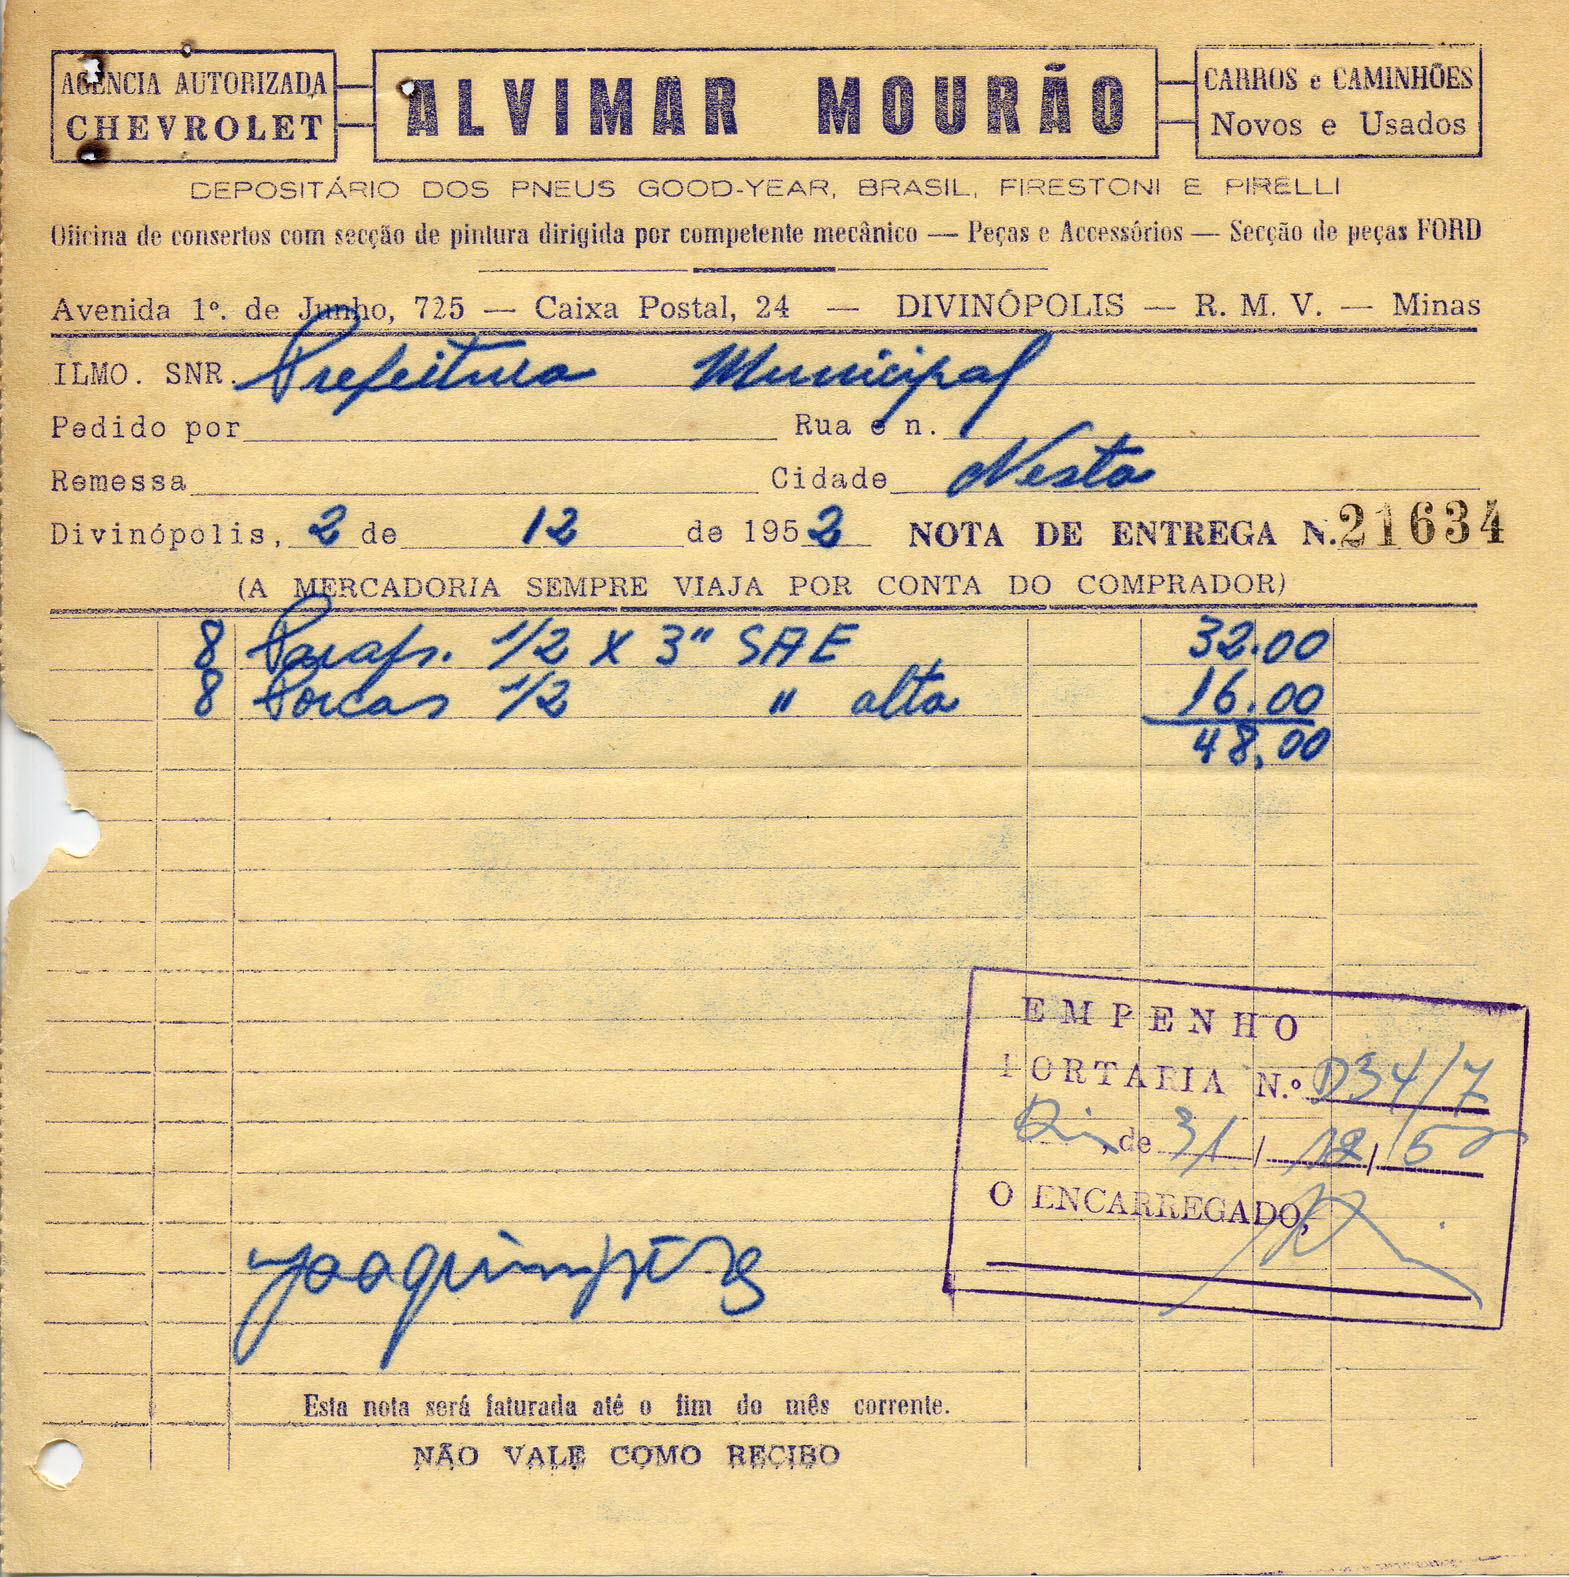 AGENCIA AUTORIZADA
CHEVROLET
ALVIMAR MOURÃO
CARROS e CAMINHÕES
Novos e Usados
DEPOSITÁRIO DOS PNEUS GOOD-YEAR, BRASIL, FIRESTONI E PIRELLI
Oficina de consertos com secção de pintura dirigida por competente mecânico — Peças e Accessórios — Secção de peças FORD
Avenida 1º. de Junho, 725 — Caixa Postal, 24 — DIVINÓPOLIS — R. M. V. — Minas
ILMO. SNR. Prefeitura Municipal
Pedido por Rua e n.
Remessa Cidade Nesta
Divinópolis, 2 de 12 de 1952 NOTA DE ENTREGA N. 21634
(A MERCADORIA SEMPRE VIAJA POR CONTA DO COMPRADOR)
8 Parafs. 1/2 x 3" SAE 32.00
8 Porcas 1/2 " alta 16.00
48,00
EMPENHO
PORTARIA N.º D34/7
Div, de 31/12/52
O ENCARREGADO,
Esta nota será faturada até o fim do mês corrente.
NÃO VALE COMO RECIBO